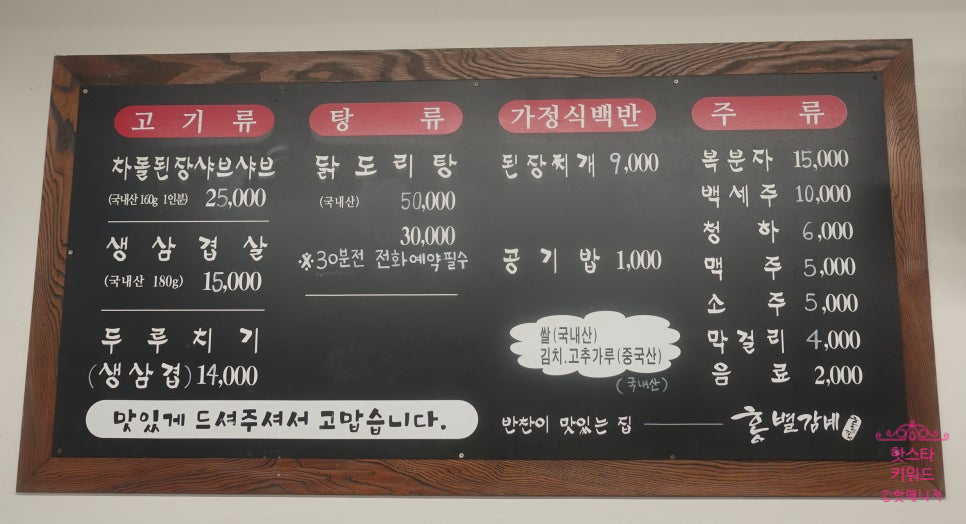 고기류
차돌된장샤브샤브
(국내산 160g 1인분) 25,000
생삼겹살
(국내산 180g) 15,000
두루치기
(생삼겹) 14,000
탕류
닭도리탕
(국내산) 50,000
30,000
※30분전 전화예약필수
가정식백반
된장찌개 9,000
공기밥 1,000
쌀(국내산)
김치.고추가루(중국산)
(국내산)
주류
복분자 15,000
백세주 10,000
청하 6,000
맥주 5,000
소주 5,000
막걸리 4,000
음료 2,000
맛있게 드셔주셔서 고맙습니다.
반찬이 맛있는 집
홍별감네
핫스타
키워드